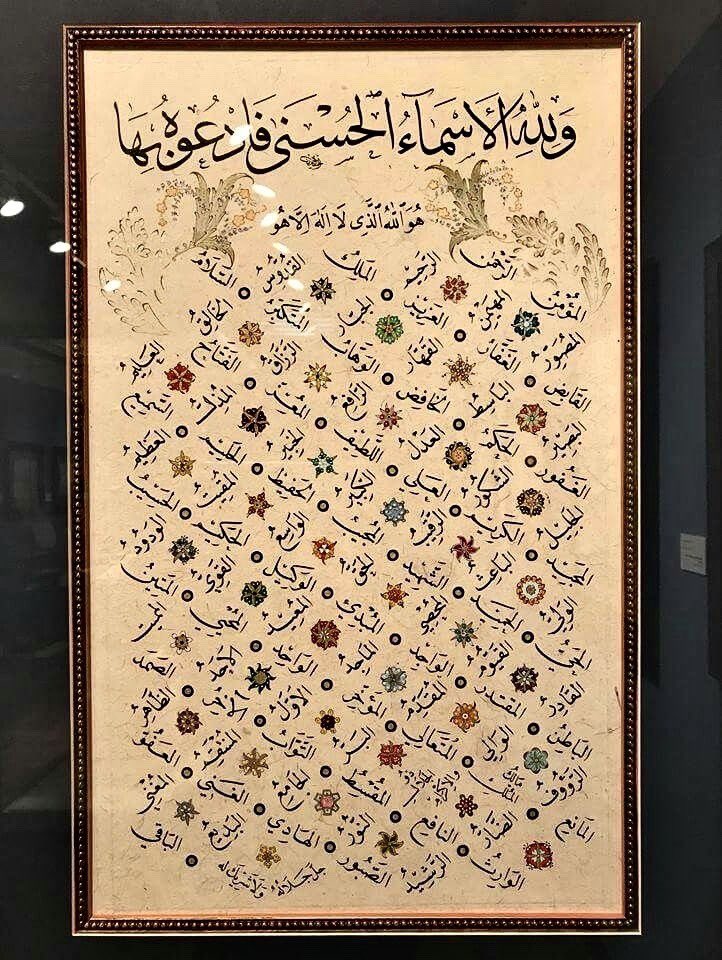 وَلِلّٰهِ الْأَسْمَآءُ الْحُسْنٰى فَادْعُوهُ بِهَا
هُوَ اللّٰهُ الَّذِي لَا اِلٰهَ اِلَّا هُوَ
الرحمن الرحيم الملك القدوس السلام
المؤمن المهيمن العزيز الجبار المتكبر الخالق
المصور الغفار القهار الوهاب الرزاق الفتاح العليم
القابض الباسط الخافض الرافع المعز المذل السميع
البصير الحكم العدل اللطيف الخبير الحليم العظيم
الغفور الشكور العلي الكبير الحفيظ المقيت الحسيب
الجليل الكريم الرقيب المجيب الواسع الحكيم الودود
المجيد الباعث الشهيد الحق الوكيل القوي المتين
الولي الحميد المحصي المبدئ المعيد المحيي المميت
الحي القيوم الواجد الماجد الواحد الاحد الصمد
القادر المقتدر المقدم المؤخر الاول الآخر الظاهر
الباطن الوالي المتعالي البر التواب المنتقم العفو
الرؤوف مالك الملك ذو الجلال والاكرام المقسط الجامع الغني المغني
المانع الضار النافع النور الهادي البديع الباقي
الوارث الرشيد الصبور جل جلاله ولا شريك له